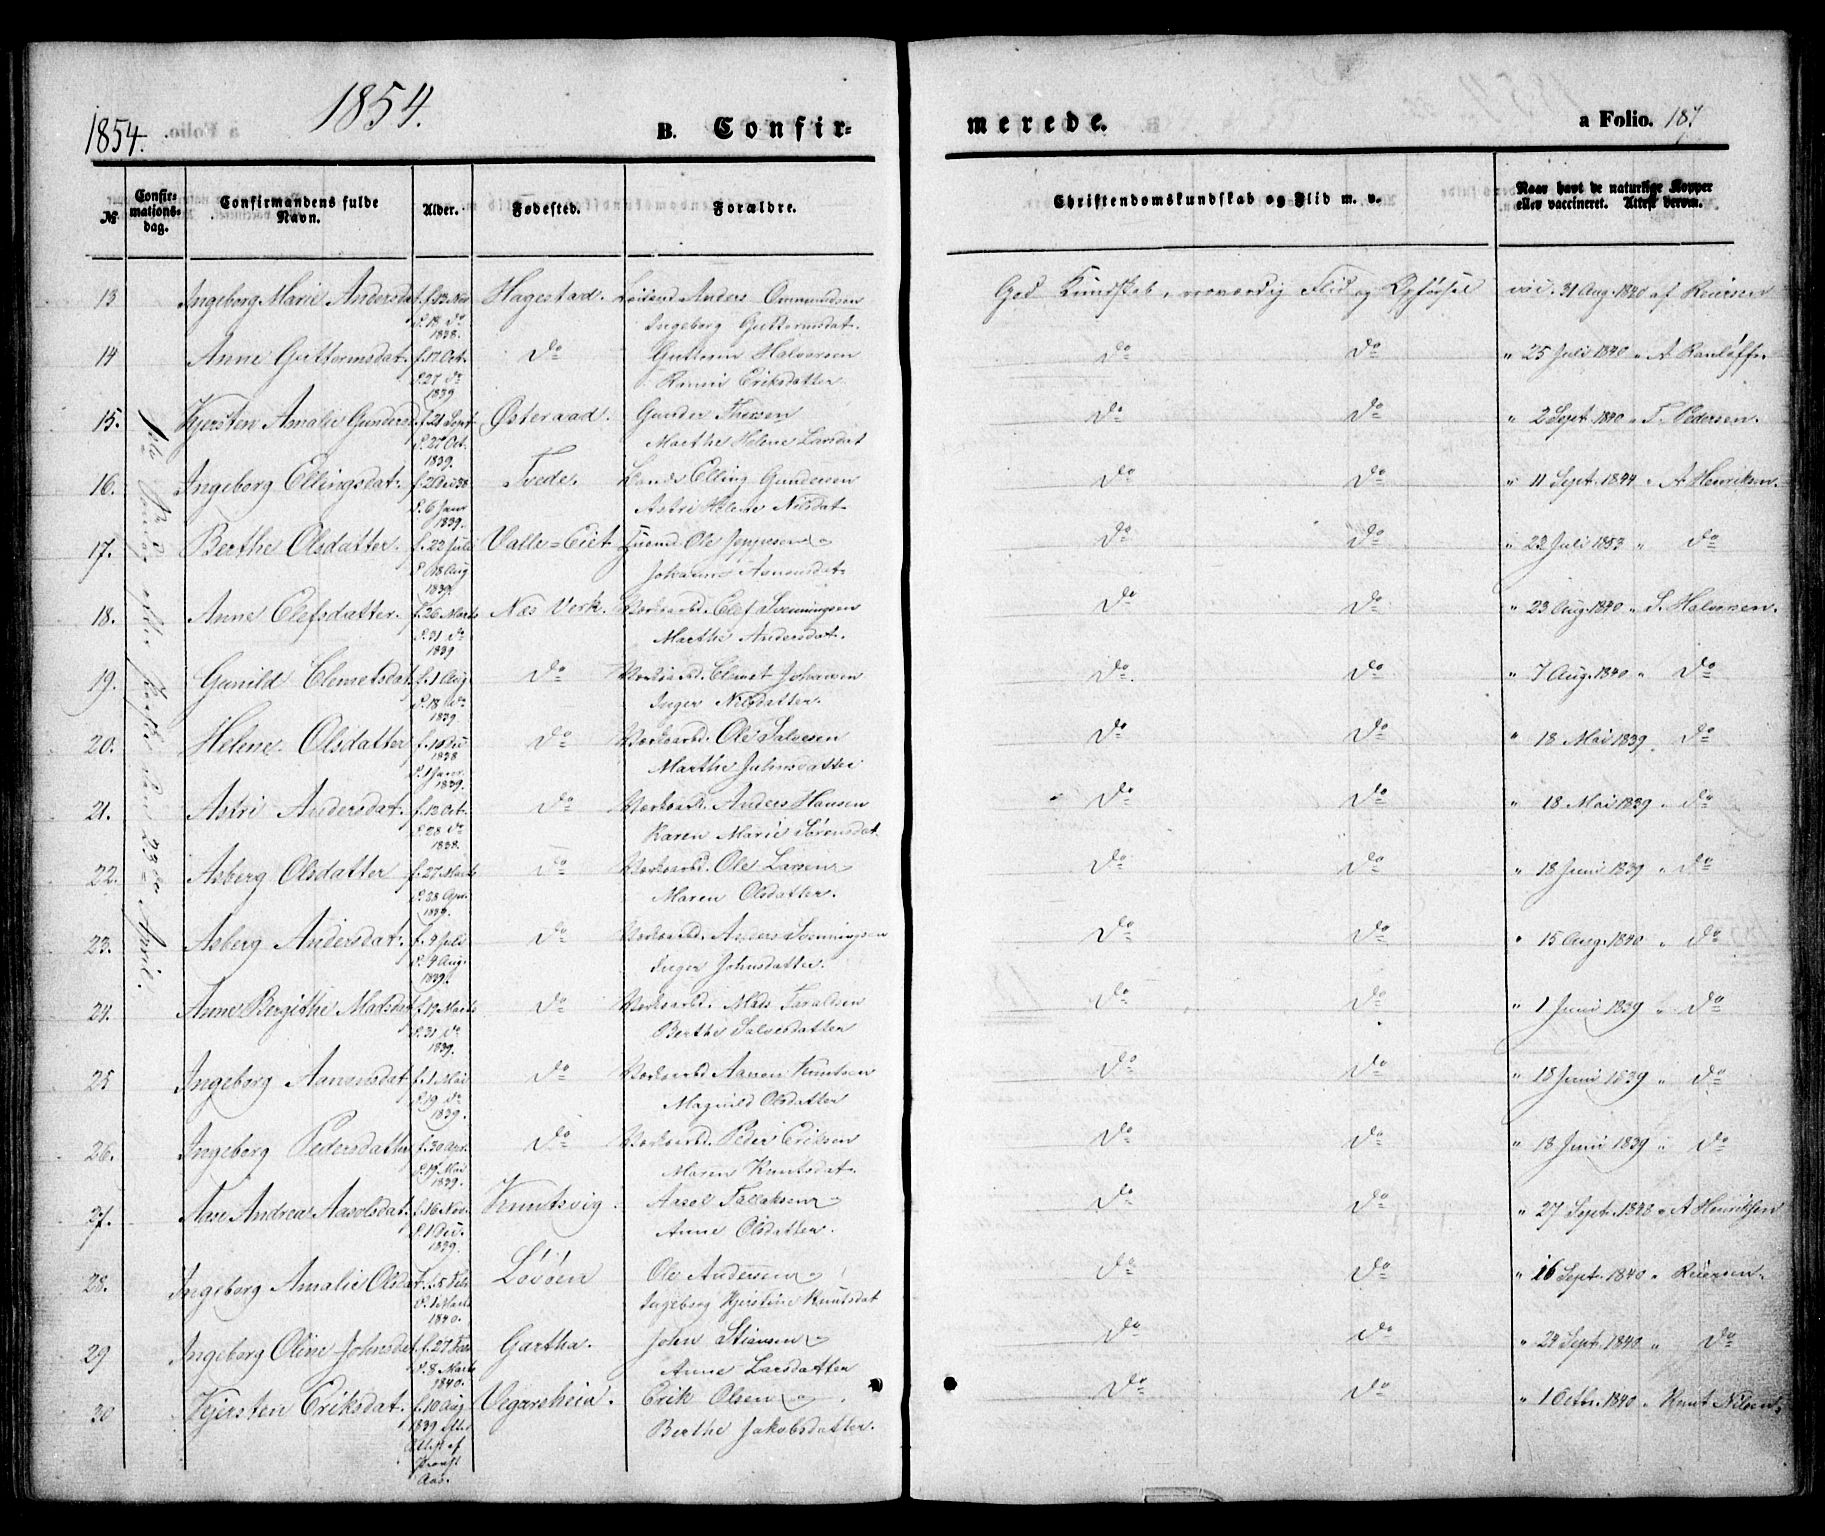 1854.
1854.
B. Confir-
merede.
a Folio. 187
№
Confir-
mations-
dag.
Confirmandens fulde
Navn.
Alder.
Fødested.
Forældre.
Christendomskundskab og Flid m. v.
Naar havt de naturlige Kopper
eller vaccineret. Attest derom.
den 23de April.
13 Ingeborg Marie Andersdat Hagestad. Anders Ommundsen God Kundskab, Flid og Opførsel vac. 31 Aug. 1840 af Reiersen
1838.
Ingeborg Guttormsdat.
14 Anne Guttormsdat. f. 17 Oct. do Guttorm Halvorsen do do " 25 Juli 1840 " A
d. 27 do
1839
Eriksdatter.
15. Kjersten Amalie Gundersd f. 21 Sept Østeraad. Gunder do do " 2 Sept 1840 " T. Pedersen.
1839.
Marthe Helene Larsdat
16. Ingeborg Ellingsdat. Tvede. Elling Gundersen do do " 11 Sept. 1844 " A Henriksen.
d. 6 Janr
1839.
Astri Helene Nilsdat
17. Berthe Olsdatter. f. 22 Juli Valle=Eiet Ole Jeppesen do do " 22 Juli 1853 " do
1839.
18. Anne Olefsdatter. f. 26 Marts Næs Verk. Olef Svenningsen do do " 23 Aug. 1840 " S. Halvorsen.
d. 31 do
1839
Marthe Andersdat.
19. Gunild Clemetsdat f. 1 Aug do Clemet Johansen do do " 7 Aug. 1840 " do
d. 18 do
1839.
Inger Nilsdatter.
20. Helene Olsdatter do Ole Salvesen do do " 18 Mai 1839 " do
1838
d. 1 Janr.
1839.
Marthe Johnsdatter
21. Astri Andersdat. Oct. do Anders Hansen do do " 18 Mai 1839 " do
d. 28 do
1838.
Karen Marie Sørensdat
22. Asberg Olsdatter f. 27 Marts do Ole Larsen do do " 18 Juni 1839 " do
d. 28 Apr.
1839.
Maren Olsdatter.
23. Asberg Andersdat. f. 9 Juli do Anders Svenningsen do do " 15 Aug. 1840 " do
Aug.
1839.
Inger Johnsdatter.
24. Anne Bergithe Madsdat f. 19 Marts do Mads Taraldsen do do " 1 Juni 1839 " do
d. 31 do
1839.
Berthe Salvesdatter
25 Ingeborg Aanonsdat f. 1 Mai do Aanon Knutsen do do " 18 Juni 1839 " do
d. 19 do
1839.
Magnild Olsdatter
26. Ingeborg Pedersdatter f. 30 Apr. do Peder Eriksen do do " 18 Juni 1839 " do
d. 19 Mai
1839.
Maren Knutsdat.
27. Aase Andrea Aasolsdat. f. 16 Nov. Knutsvig. Aasol Tallaksen do do " 27 Sept. 1840 " A Henriksen
d. 1 Dec.
1839.
Anne Olsdatter.
28. Ingeborg Amalie Olsdat. Løvöen Ole Andersen do do " 16 Sept. 1840 " Reiersen.
1840.
Ingeborg Kjerstine Knutsdat
29 Ingeborg Oline Johnsdat f. 27 Gartha. John Stiansen do do " 24 Sept. 1840 " do
d. 8 Marts
1840.
Anne Larsdatter
30 Kjersten Eriksdat. f. 10 Aug Vegarsheia. Erik Olsen do do " 1 Octbr. 1840 " Knut Nilsen.
1839 efter
Attest af
Provst
Aas.
Berthe Jakobsdatter.